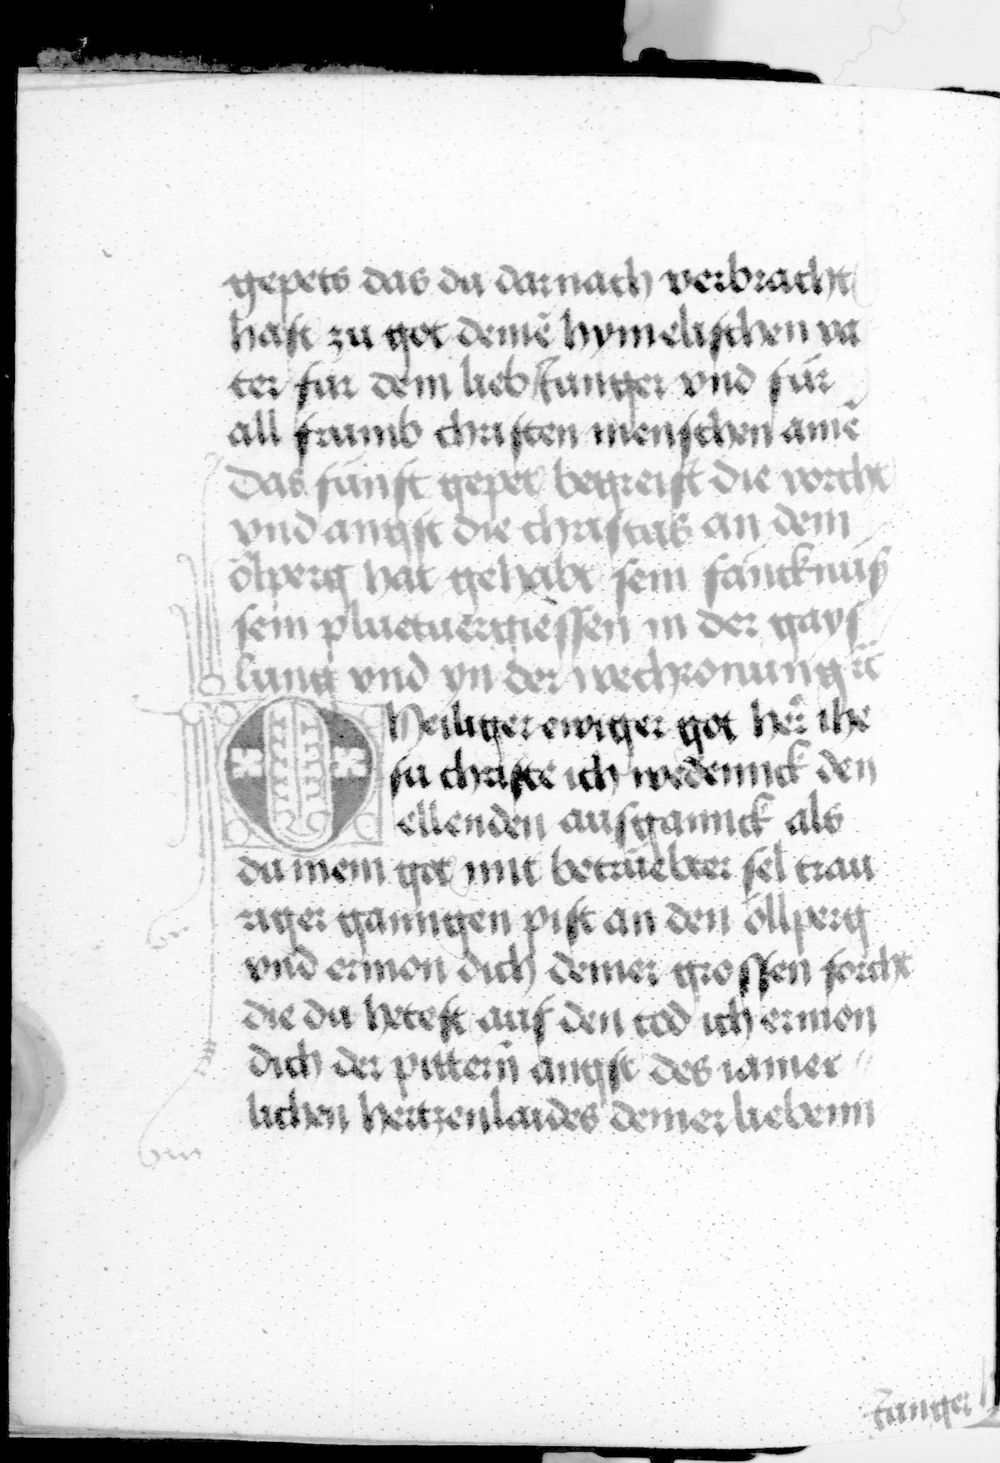 gepets das du darnach verbracht
hast zu got deinē hymelischen va
ter fur dein lieb Junger vnd für
all frumb christen menschen amē
Das fünft gepet begreift die vorcht
vnd angst die christus an dem
ölperg hat gehabt sein fäncknuß
sein pluetuergiessen in der gays
lung vnd yn der wechronung ꝛc̄
O heiliger ewiger got her̄ ihe
su christe ich wedennck den
ellenden ausganck als
du mein got mit betrüebter sel trau
riger ganngen pist an den öllperg
vnd ermon dich deiner grossen forcht
die du hetest auf den tod ich ermon
dich der pittern̄ angst des iamer
lichen hertzenlaides deiner liebenn
Junger